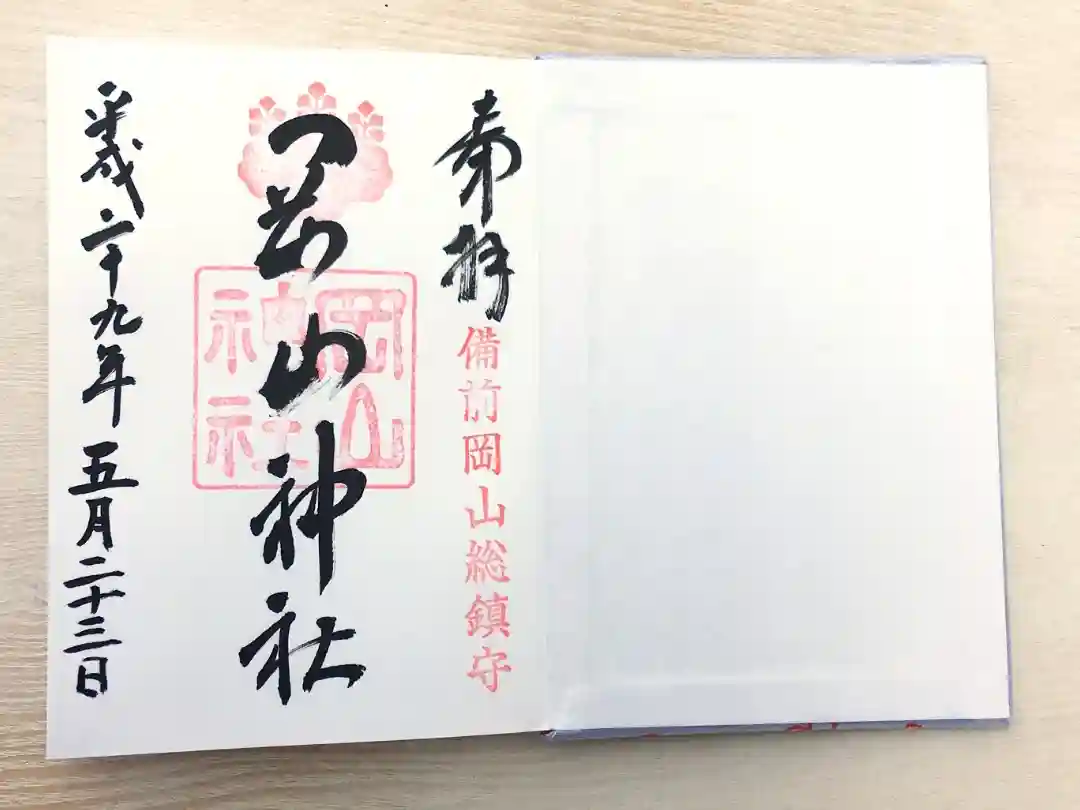 奉拝
備前岡山総鎮守
岡山神社
岡山神社
平成二十九年五月二十三日